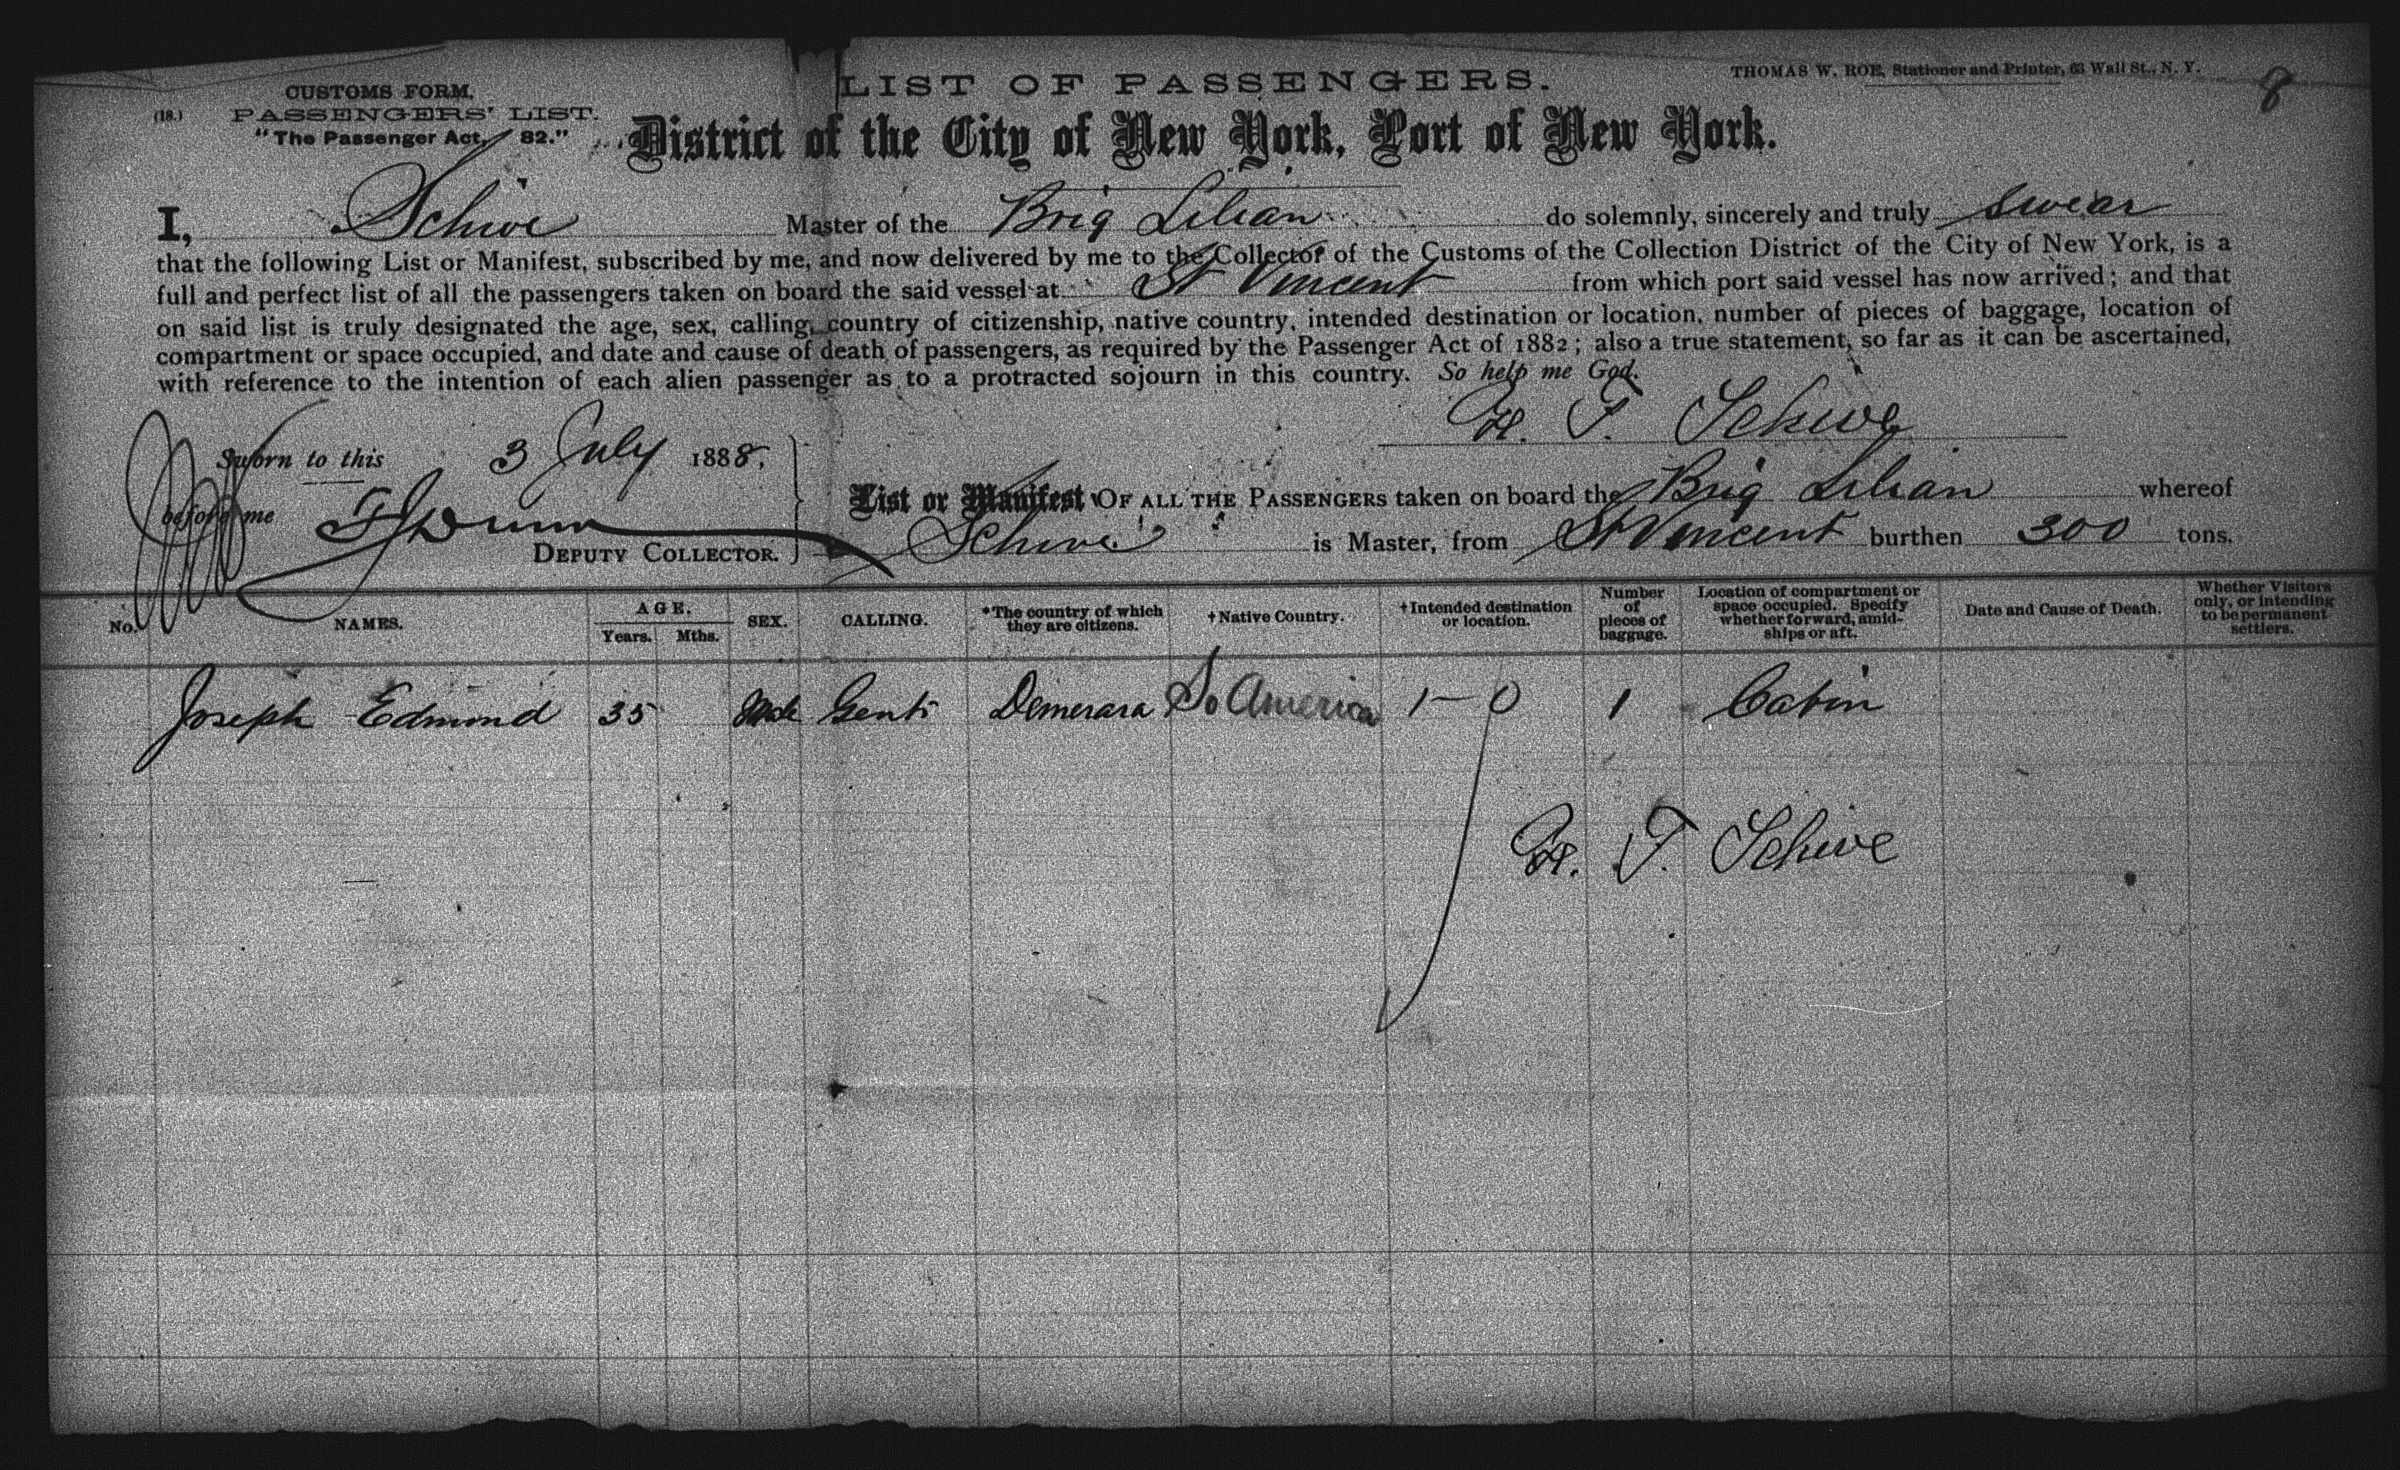 CUSTOMS FORM.
LIST OF PASSENGERS.
THOMAS W. ROE, Stationer and Printer, 63 Wall St., N. Y.
8
(18.) PASSENGERS' LIST.
"The Passenger Act, 82."
District of the City of New York, Port of New York.
I, Schive Master of the Brig Lilian do solemnly, sincerely and truly swear
that the following List or Manifest, subscribed by me, and now delivered by me to the Collector of the Customs of the Collection District of the City of New York, is a
full and perfect list of all the passengers taken on board the said vessel at St Vincent from which port said vessel has now arrived; and that
on said list is truly designated the age, sex, calling, country of citizenship, native country, intended destination or location, number of pieces of baggage, location of
compartment or space occupied, and date and cause of death of passengers, as required by the Passenger Act of 1882; also a true statement, so far as it can be ascertained,
with reference to the intention of each alien passenger as to a protracted sojourn in this country. So help me God.
H. T. Schive
Sworn to this 3 July 1888,
before me
DEPUTY COLLECTOR.
List or Manifest OF ALL THE PASSENGERS taken on board the Brig Lilian whereof
Schive is Master, from St Vincent burthen 300 tons.
No. NAMES. AGE. Years. Mths. SEX. CALLING. *The country of which they are citizens. †Native Country. †Intended destination or location. Number of pieces of baggage. Location of compartment or space occupied. Specify whether forward, amidships or aft. Date and Cause of Death. Whether Visitors only, or intending to be permanent settlers.
Joseph Edmond 35 Male Gent Demerara So America 1-0 1 Cabin
H. T. Schive